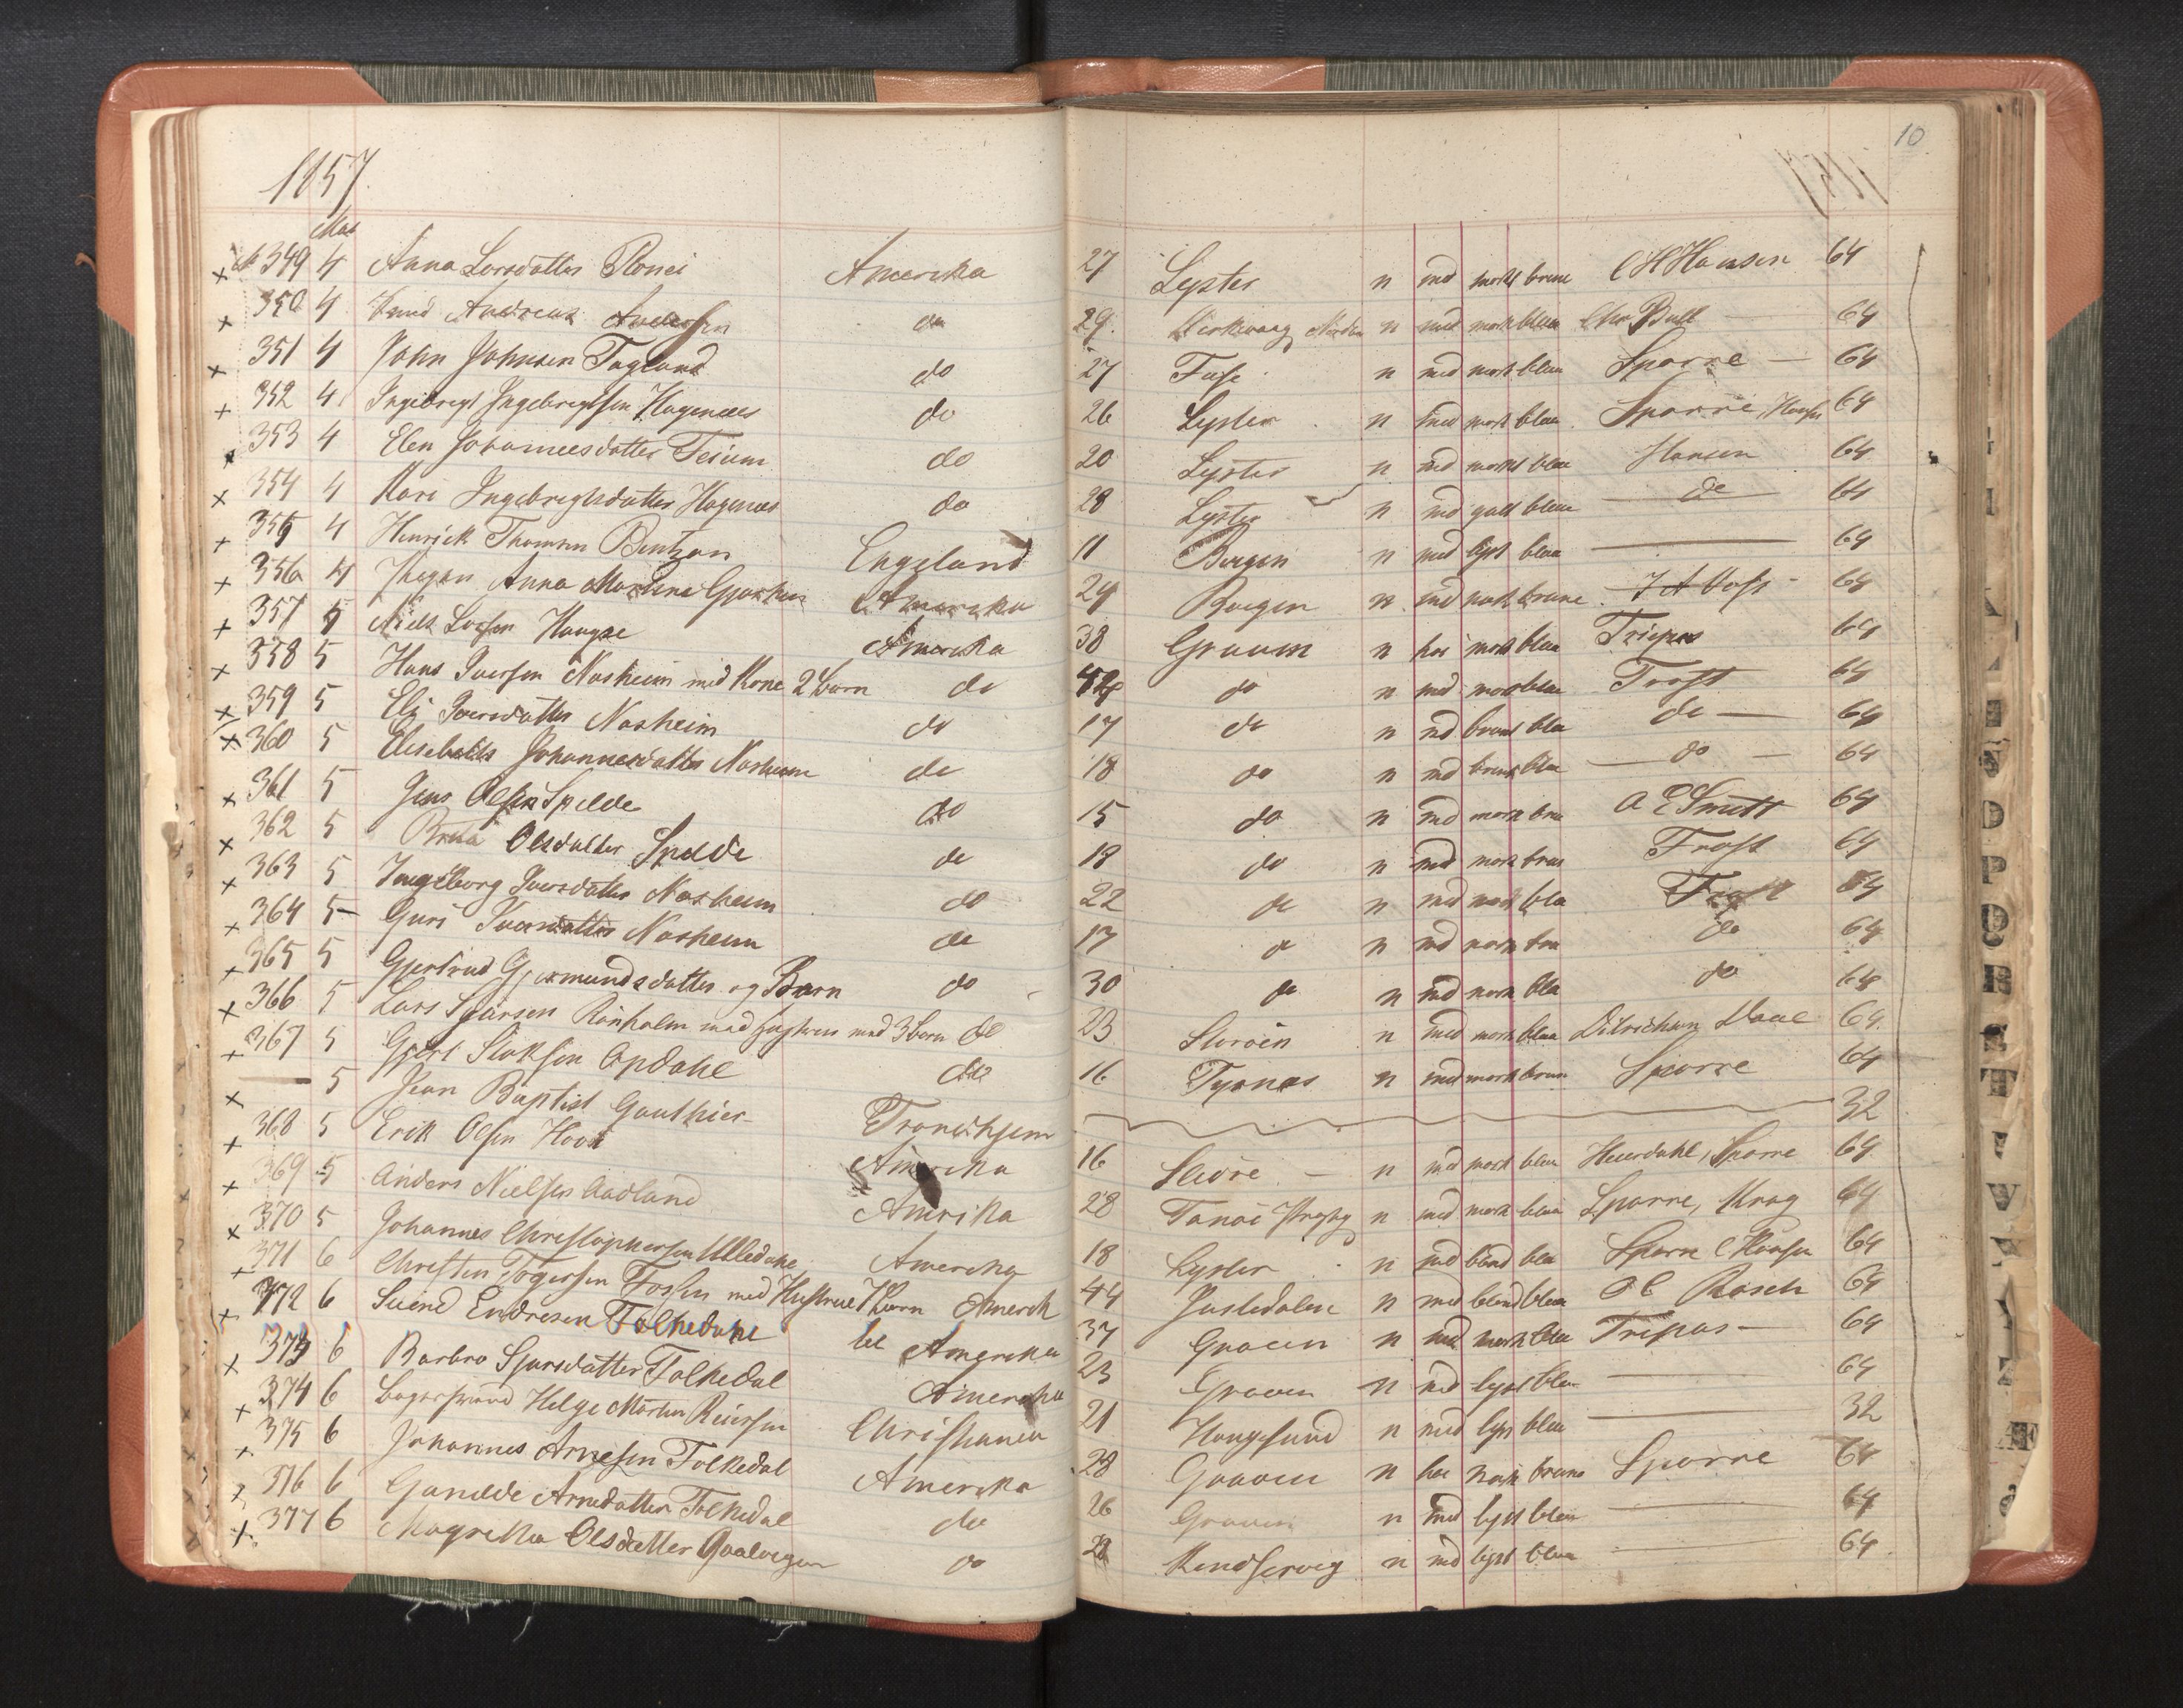 1857.
10
Mai
349 4 Anna Larsdatter Amerika 27 Lyster n md mork brune C H Hansen 64
350 4 Knud Andreas Andersen do 29 n md mork blaa Chr Bull — 64
351 4 John Johnsen Togland do 27 Fuse n md mork blaa Sparre — 64
352 4 Ingebregt Ingebregtsen Hagenæs do 26 Lyster n md mork blaa Sparre, 64
353 4 Elen Johannesdatter Teium do 20 Lyster n md mork blaa Hansen 64
354 4 Kari Ingebregtsdatter Hagenæs do 28 Lyster n md guul blaa do 64
355 4 Henrick Thomsen Bentzon Engeland 11 Bergen n md lyst blaa — 64
356 4 Jfr Anna Martine Amerika 24 Bergen n md mork brune J A Vosf 64
357 5 Niels Larsen Haugse Amerika 38 Graven n hoi mork blaa Tripas 64
358 5 Hans Iversen Nasheim med Kone 2 barn do do n md mork blaa Trost 64
359 5 Eli Iversdatter Nasheim do 17 do n md bruns blaa do — 64
360 5 Elisebeths Johannesdatter Nasheim do 18 do n md bruns blaa — do — 64
361 5 Jens Olsen Spilde do 15 do n md mork brun A E Smitt 64
362 5 Brita Olsdatter Spilde do 19 do n md mork brun Trost 64
363 5 Ingeborg Iversdatter Nasheim do 22 do n md mork blaa Trost 64
364 5 Guri Iversdatter Nasheim do 17 do n md mork brun do 64
365 5 Gjertrud Gjermundsdatter og Barn do 30 do n md mork blaa do 64
366 5 Lars Sjursen Ronholm med hustrue med 3 barn do 23 Storöen n md mork blaa Ditrichsen 64
367 5 Gjert Opdahl do 16 Tysnes n md mork brun Sparre 64
— 5 Jean Baptist Gauthier Trondhjem 32
368 5 Erik Olsen Amerika 16 n md mork blaa Heierdahl, Sparre 64
369 5 Anders Nielsen Aadland Amerika 28 n md mork blaa Sparre, Krag 64
370 5 Johannes Christophersen Amerika 18 Lyster n md blond blaa Sparre C Hansen 64
371 6 Christen Togersen Fossen med Hustrue 7 Barn Amerik 44 Justedalen n md blond blaa O C Rasch 64
372 6 Svend Endresen Folkedahl til Amerika 37 Graven n md mork blaa Tripas — 64
373 6 Barbro Sjursdatter Folkedal Amerika 23 Graven n md lyst blaa — 64
374 6 Bagersvend Helge Morten Reiersen Christiania 21 Haugesund n md lyst blaa — 32
375 6 Johannes Arnesen Folkedal Amerika 28 Graven n hoi mork brune Sparre 64
376 6 Gunilde Arnedatter Folkedal do 26 Graven n md lyst blaa — 64
377 6 Magretha Olsdatter do 28 Kindservig n md lyst blaa — 64